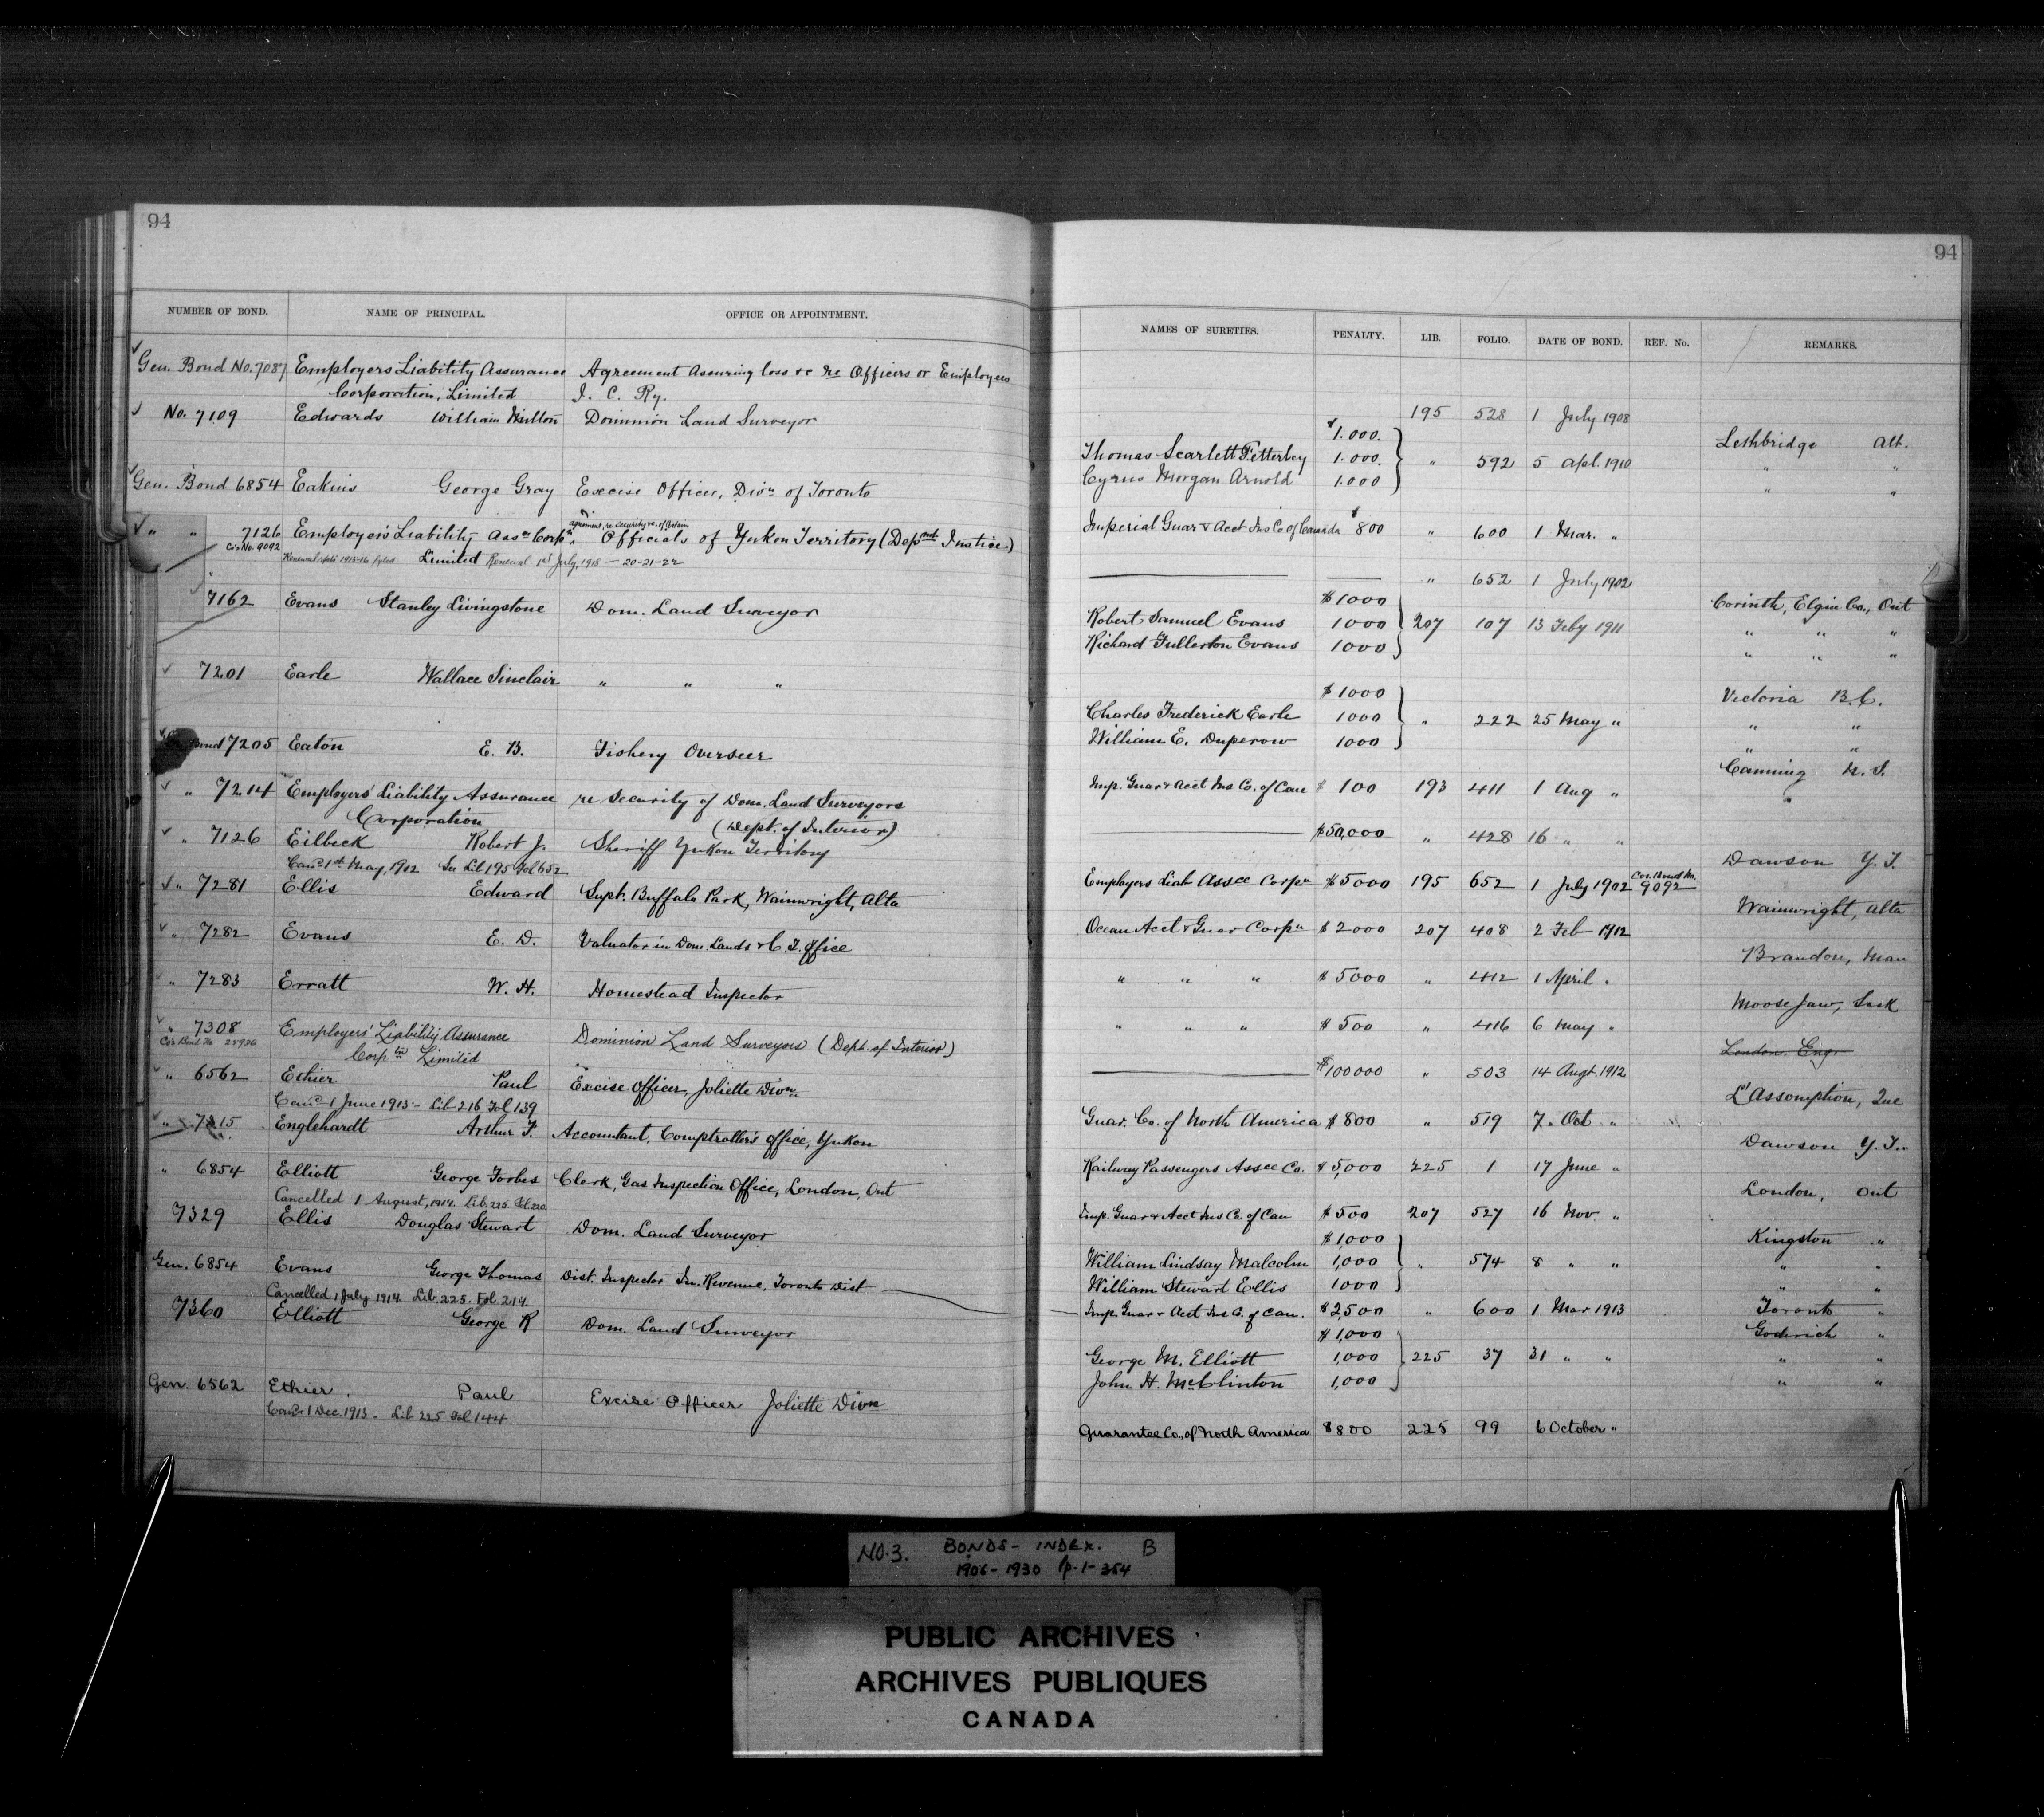 94
NUMBER OF BOND. NAME OF PRINCIPAL. OFFICE OR APPOINTMENT.
Gen. Bond No. 7087 Employers Liability Assurance Agreement assuring loss &c re Officers or Employees
Corporation, Limited I. C. Ry.
No. 7109 Edwards William Milton Dominion Land Surveyor
Gen. Bond 6854 Eakins George Gray Excise Officer, Divn of Toronto
" " 7126 Employer's Liability Assn Corpn, Officials of Yukon Territory (Depmt Justice)
Cor No. 9092 Limited Renewal 1st July, 1918 — 20-21-22
7162 Evans Stanley Livingstone Dom. Land Surveyor
7201 Earle Wallace Sinclair " " "
Bond 7205 Eaton E. B. Fishery Overseer
" 7214 Employers' Liability Assurance re Security of Dom. Land Surveyors
Corporation (Dept. of Interior)
" 7126 Eilbeck Robert J. Sheriff Yukon Territory
Cancd 1st May, 1912 See Lib 195 Fol 652
" 7281 Ellis Edward Supt. Buffalo Park, Wainwright, Alta
" 7282 Evans E. D. Valuator in Dom. Lands & C. T. Office
" 7283 Erratt W. H. Homestead Inspector
" 7308 Employers' Liability Assurance Dominion Land Surveyors (Dept. of Interior)
Cor Bond No 25926 Corp tn Limited
" 6562 Ethier Paul Excise Officer, Joliette Divn
Cancd 1 June 1913 - Lib 216 Fol 139
" 7315 Englehardt Arthur F. Accountant, Comptroller's Office, Yukon
" 6854 Elliott George Forbes Clerk, Gas Inspection Office, London, Ont
Cancelled 1 August, 1914. Lib. 225. Fol. 220
7329 Ellis Douglas Stewart Dom. Land Surveyor
Gen. 6854 Evans George Thomas Dist. Inspector In. Revenue, Toronto Dist
Cancelled 1 July 1914 Lib. 225. Fol. 214.
7360 Elliott George R Dom. Land Surveyor
Gen. 6562 Ethier, Paul Excise Officer Joliette Divn
Cancd 1 Dec. 1913 - Lib 225 Fol 144
94
NAMES OF SURETIES. PENALTY. LIB. FOLIO. DATE OF BOND. REF. No. REMARKS.
195 528 1 July 1908
$1.000. Lethbridge Alt.
Thomas Scarlett Fetterbey 1.000. " 592 5 Apl. 1910 " "
Cyrus Morgan Arnold 1.000 " "
Imperial Guar & Acct Ins Co. of Canada $800 " 600 1 Mar. "
" 652 1 July 1902
$1000 Corinth, Elgin Co., Ont
Robert Samuel Evans 1000 207 107 13 Feby 1911 " " "
Richard Fullerton Evans 1000 " " "
$1000 Victoria B.C.
Charles Frederick Earle 1000 " 222 25 May " " "
William E. Duperow 1000 " "
Canning N.S.
Imp. Guar & Acct Ins Co. of Can $100 193 411 1 Aug "
$50,000 " 428 16 " "
Dawson Y.T.
Employers Liab Assce Corpn $5000 195 652 1 July 1902 Cor. Bond No. 9092
Wainwright, Alta
Ocean Acct & Guar Corpn $2000 207 408 2 Feb 1912
Brandon, Man
" " " $5000 " 412 1 April "
Moose Jaw, Sask
" " " $500 " 416 6 May "
London, Eng
$100000 " 503 14 Augt. 1912
L'Assomption, Que
Guar. Co. of North America $800 " 519 7. Oct "
Dawson Y.T.
Railway Passengers Assce Co. $5,000 225 1 17 June "
London, Ont
Imp. Guar & Acct Ins Co. of Can $500 207 527 16 Nov. "
$1,000 Kingston "
William Lindsay Malcolm 1,000 " 574 8 " " " "
William Stewart Ellis 1000 " "
Imp. Guar & Acct Ins Co. of Can. $2,500 " 600 1 Mar 1913 Toronto "
$1,000 Goderich "
George M. Elliott 1,000 225 37 31 " " " "
John H. McClinton 1,000 " "
Guarantee Co., of North America $800 225 99 6 October "
NO. 3. BONDS - INDEX. B
1906 - 1930 p. 1-354
PUBLIC ARCHIVES
ARCHIVES PUBLIQUES
CANADA